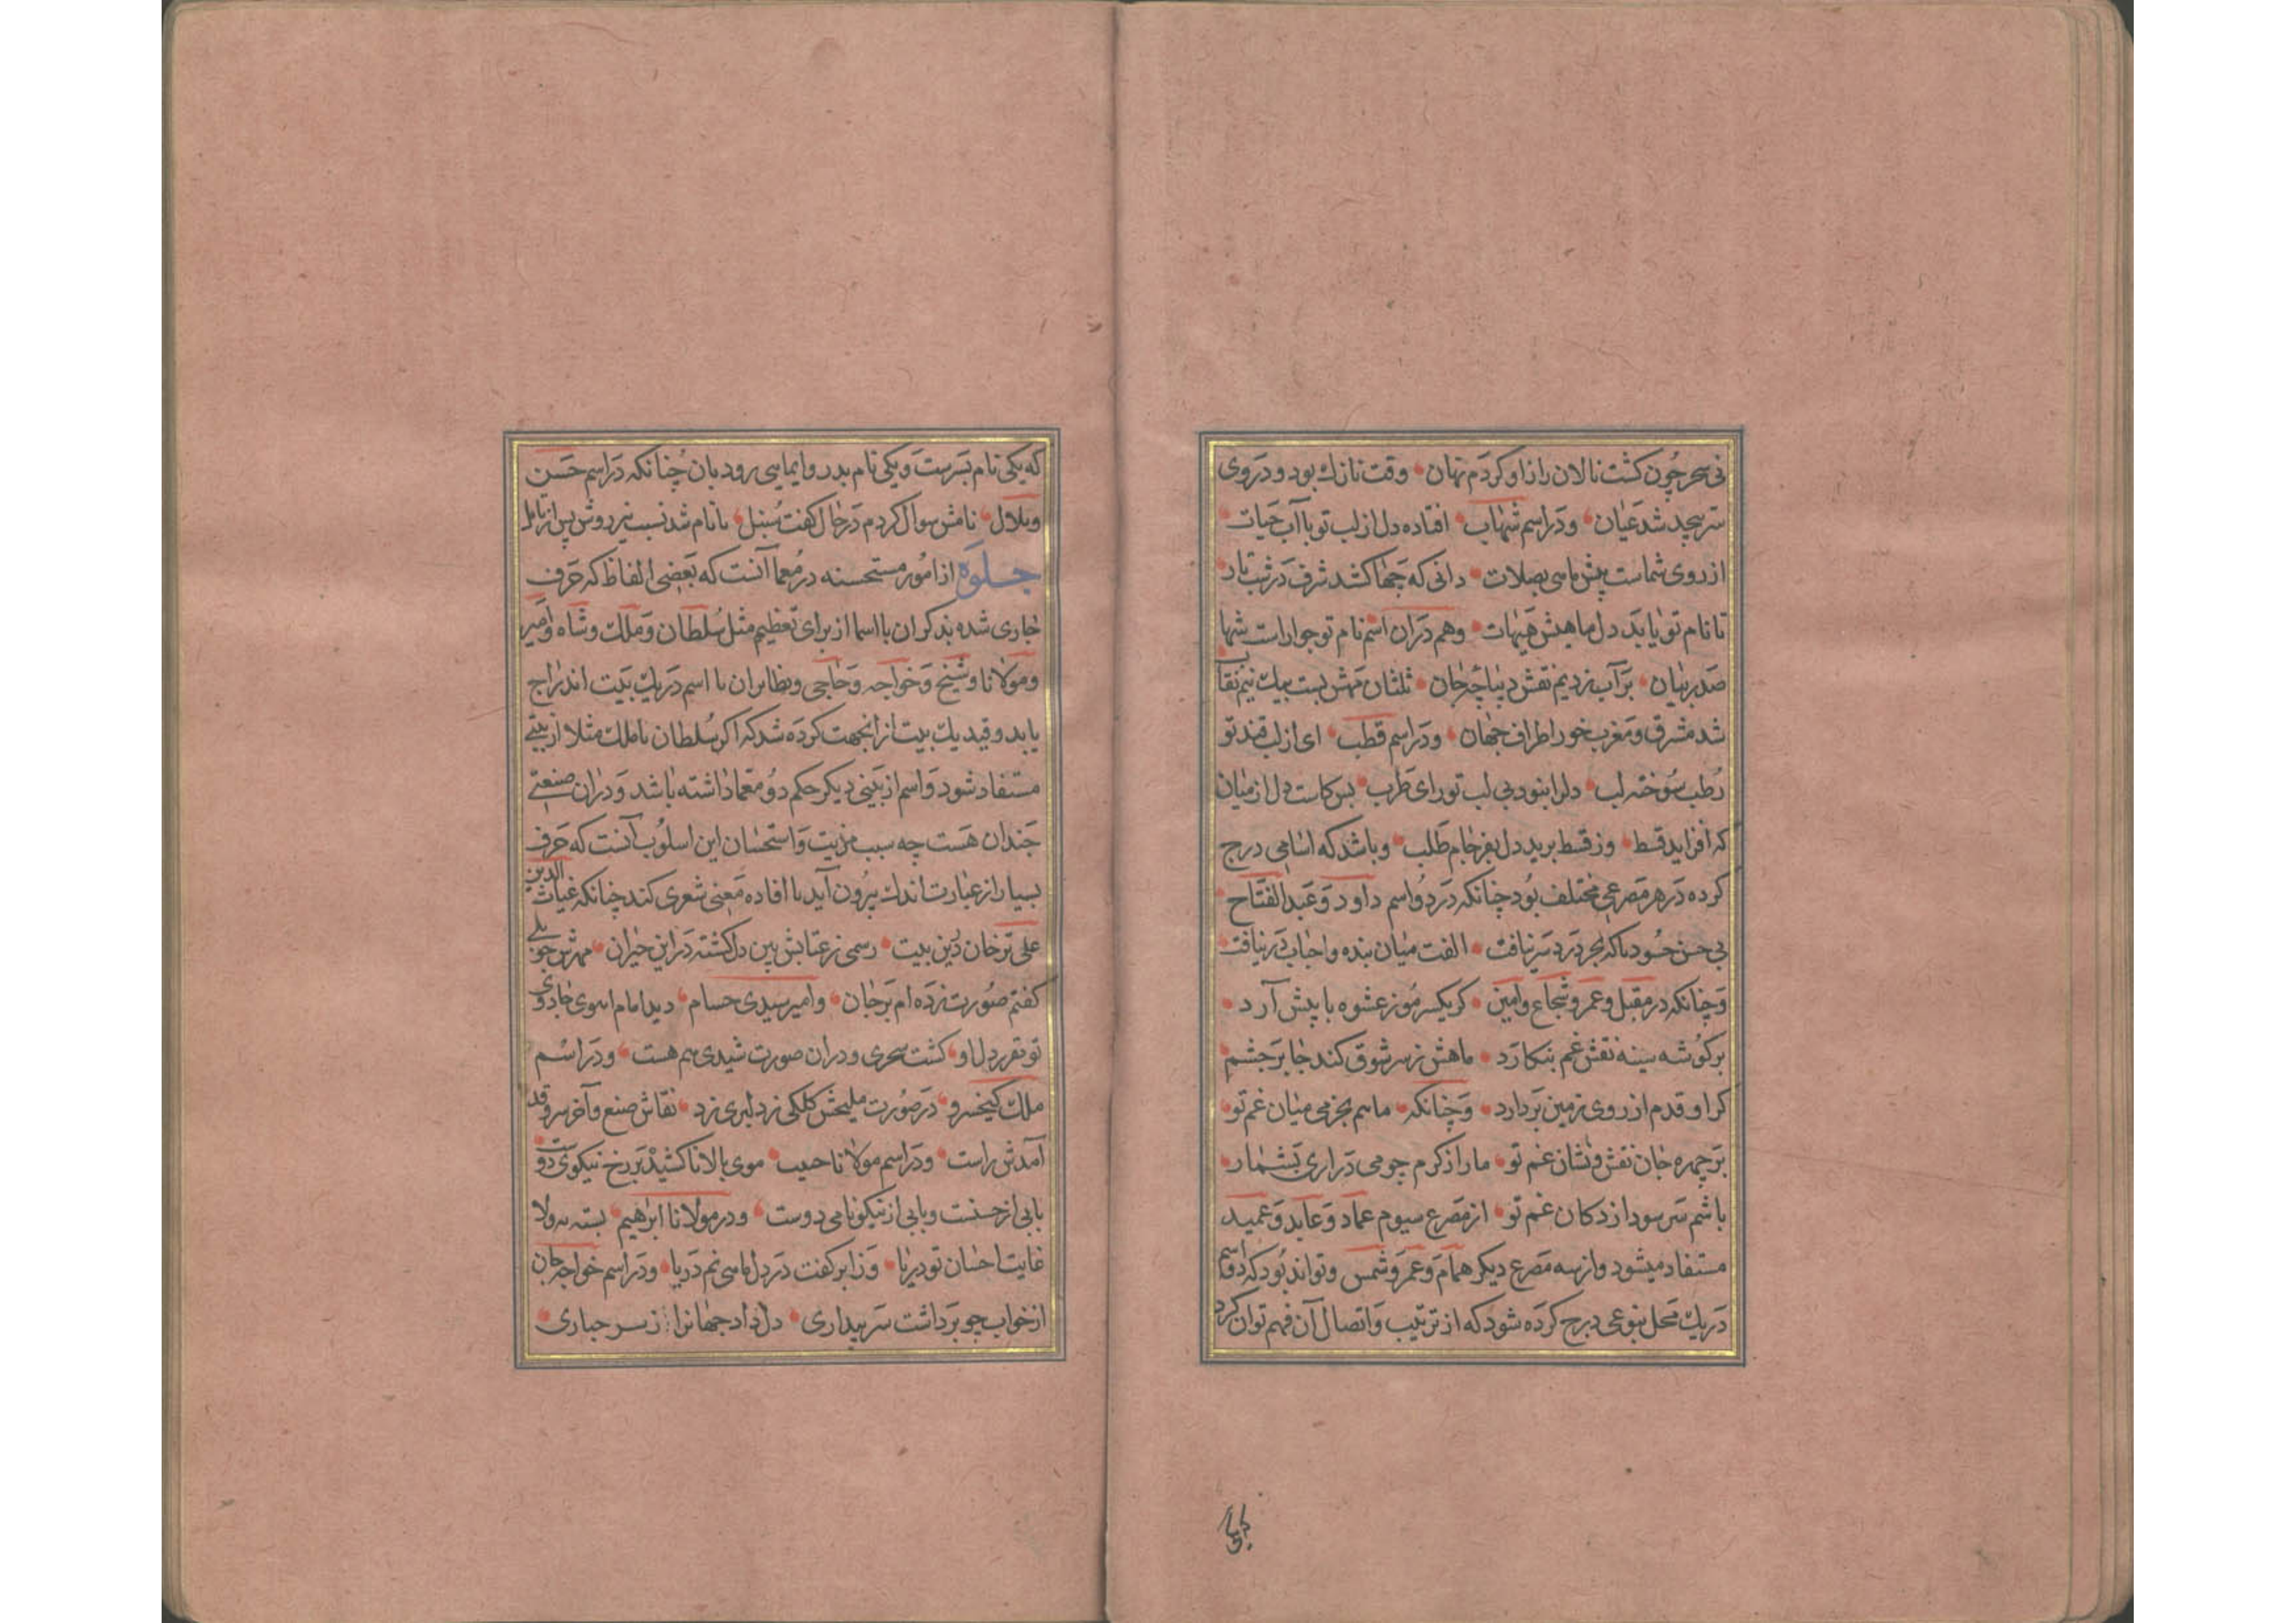 نی سحر چون کشت نالان راز او کردم نهان وقت نازك بود و در روی
سر بجید شد عیان ودراسم شهاب افتاده دل از لب تو با آب حیات
از روی شماست پیش ما سی بصلات دانی که چها کشد شرف در شب تار
تا نام تو یابد دل ما هیش هیهات وهم دران اسم نام تو جو اراست شها
صدر بیان بر آب زدیم نقش دیباچه جان ثلثان مهش بست بیك نیم نقاب
شد مشرق ومغرب خور اطراف جهان ودر اسم قطب ای از لب قند تو
رطب سوخته لب دلرا نبود بی لب تو رای طرب بس کاست دل از میان
که افزاید قسط وز قسط برید دل بفرجام طلب وباشد که اسامی درج
کرده در هر مصرعی مختلف بود چنانکه در دو اسم داود وعبد الفتاح
بی حسن حسود ماکه جز درد سر نیافت الفت میان بنده واحباب در نیافت
وچنانکه در مقبل وعمر وشجاع وامین کر یکسر موز عشوه با پیش آرد
بر کوشه سینه نقش غم بنکارد ماهش ز سر شوق کند جا بر چشم
کر او قدم از روی زمین بر دارد وچنانکه ما سم بجز می میان غم تو
بر چهره جان نقش ونشان غم تو ما را ز کرم چو می در اری بشمار
باشم سر سود از دکان غم تو از مصرع سیوم عماد وعابد وعمید
مستفاد میشود واز سه مصرع دیکر همام وعمر وشمس وتواند بود که دو اسم
در یك محل بنوعی درج کرده شود که از ترتیب واتصال آن فهم توان کرد
که یکی نام پسرست ویکی نام پدر وایمایی رود بان چنانکه در اسم حسن
وبلال نامش سوال کردم در حال کفت سنبل با نام شد نسب نیز روشن پس از تامل
جلوه از امور مستحسنه در معما آنست که بعضی الفاظ که حرف
جاری شده بذکر ان با اسما از برای تعظیم مثل سلطان وملك وشاه وامیر
ومولانا وشیخ وخواجه وحاجی ونظایر ان با اسم در یك بیت اندراج
یابد وقید یك بیت ازانجهت کرده شد که اکر سلطان یا ملك مثلا از بیتی
مستفاد شود واسم از بیتی دیکر حکم دو معما داشته باشد ودران صنعتی
چندان هست چه سبب مزیت واستحسان این اسلوب آنست که حرف
بسیار از عبارت اندك بیرون آید با افاده معنی شعری کند چنانکه غیاث الدین
علی ترخان دین بیت رسمی ز عتابش بین دل کشته در این حیران مهرش چو بلی
کفتم صورت زده ام بر جان وامیر سیدی حسام دید امام ابروی جادوی
تو تقرر دل او کشت سحری ودران صورت شیدی هم هست ودر اسم
ملك کیخسرو در صورت ملیحش کلکی ز دلبری زد نقاش صنع وآخر سرو قد
آمدش راست ودر اسم مولانا حبیب موی بالا نا کشید بر رخ نیکوی دوست
بابی از حسنت وبابی از نیکو نامی دوست ودر مولانا ابراهیم بسته سولا
غایت احسان تو دریا وز ابر کفت در دل ما سی نم دریا ودر اسم خواجه جان
از خواب چو برداشت سر بیداری دل داد جهانرا ز سر جباری